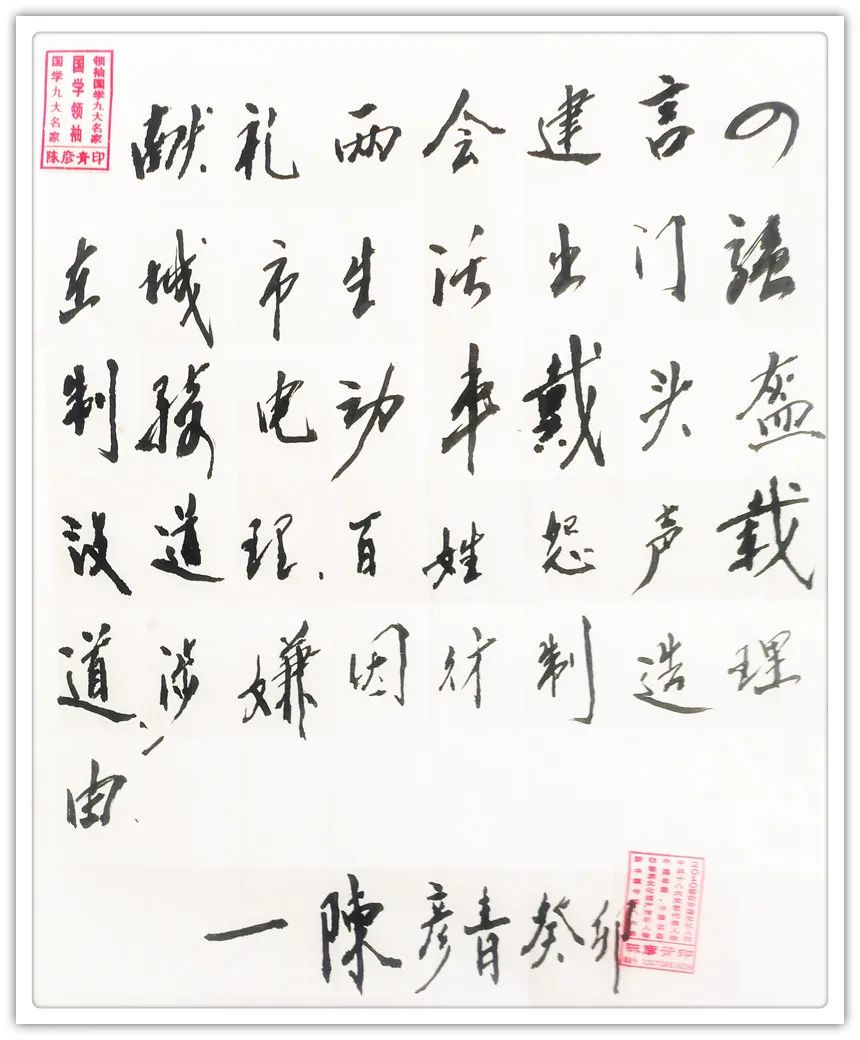 领袖国学九大名家
国学领袖
国学九大名家
陈彦青印
献礼两会建言の
在城市生活出门强
制骑电动车戴头盔
没道理.百姓怨声载
道,涉嫌因制造理
由.
一陳彦青癸卯